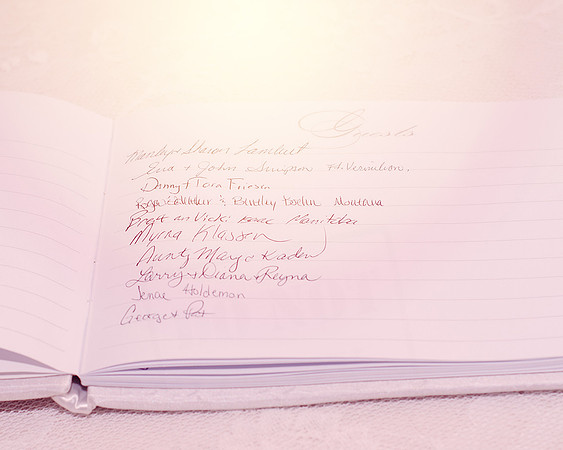 Guests
Sharon Lambert
Eva + John Simpson Ft. Vermilion.
Danny + Tara Friesen
& Bentley Montana
Vicki Manitoba
Myrna Klassen
Aunty Mary & Kaden
Larry + Diana + Reyna
Jenae Holdeman
George + Pat